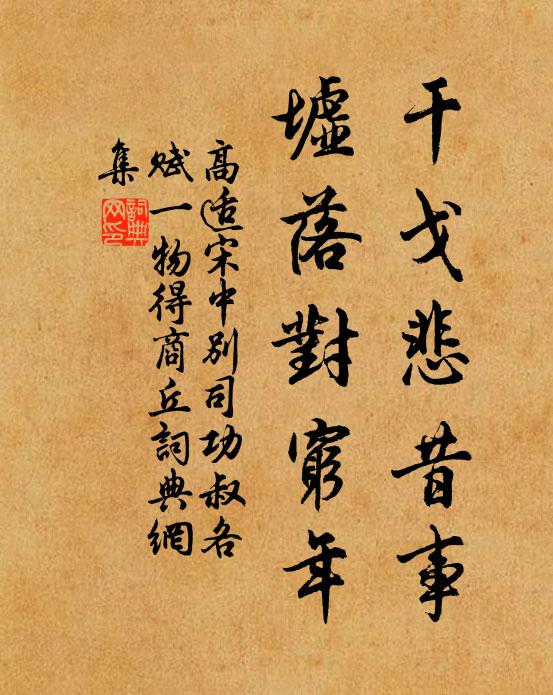 干戈悲昔事
墟落對窮年
高适宋中別司功叔各
賦一物得商丘詞典網
集
詞典
网印